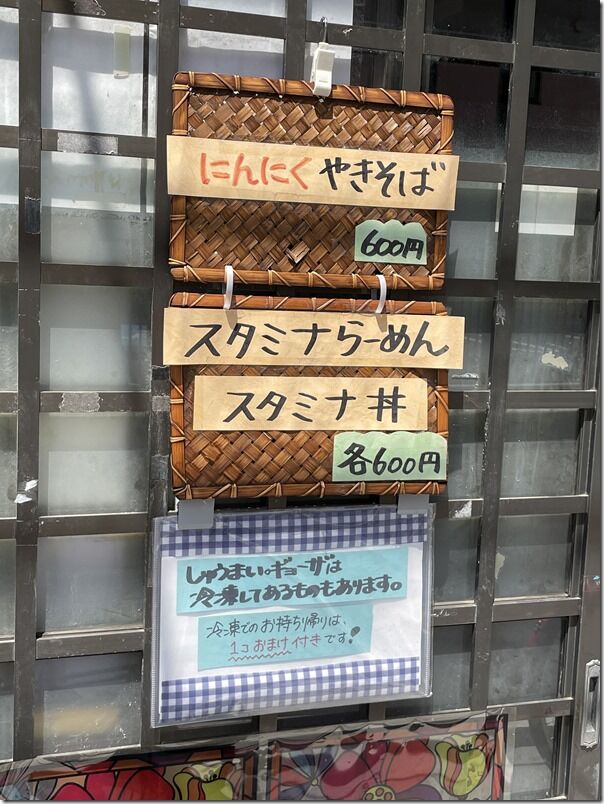 にんにくやきそば
600円
スタミナらーめん
スタミナ丼
各600円
しゅうまい。ギョーザは
冷凍してあるものもあります。
冷凍でのお持ち帰りは、
1コおまけ付きです!